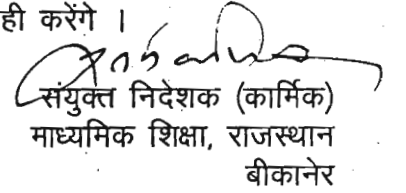 ही करेंगे ।
संयुक्त निदेशक (कार्मिक)
माध्यमिक शिक्षा, राजस्थान
बीकानेर